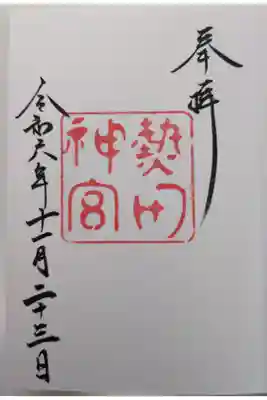 奉拝
熱田
神宮
令和六年十一月二十三日